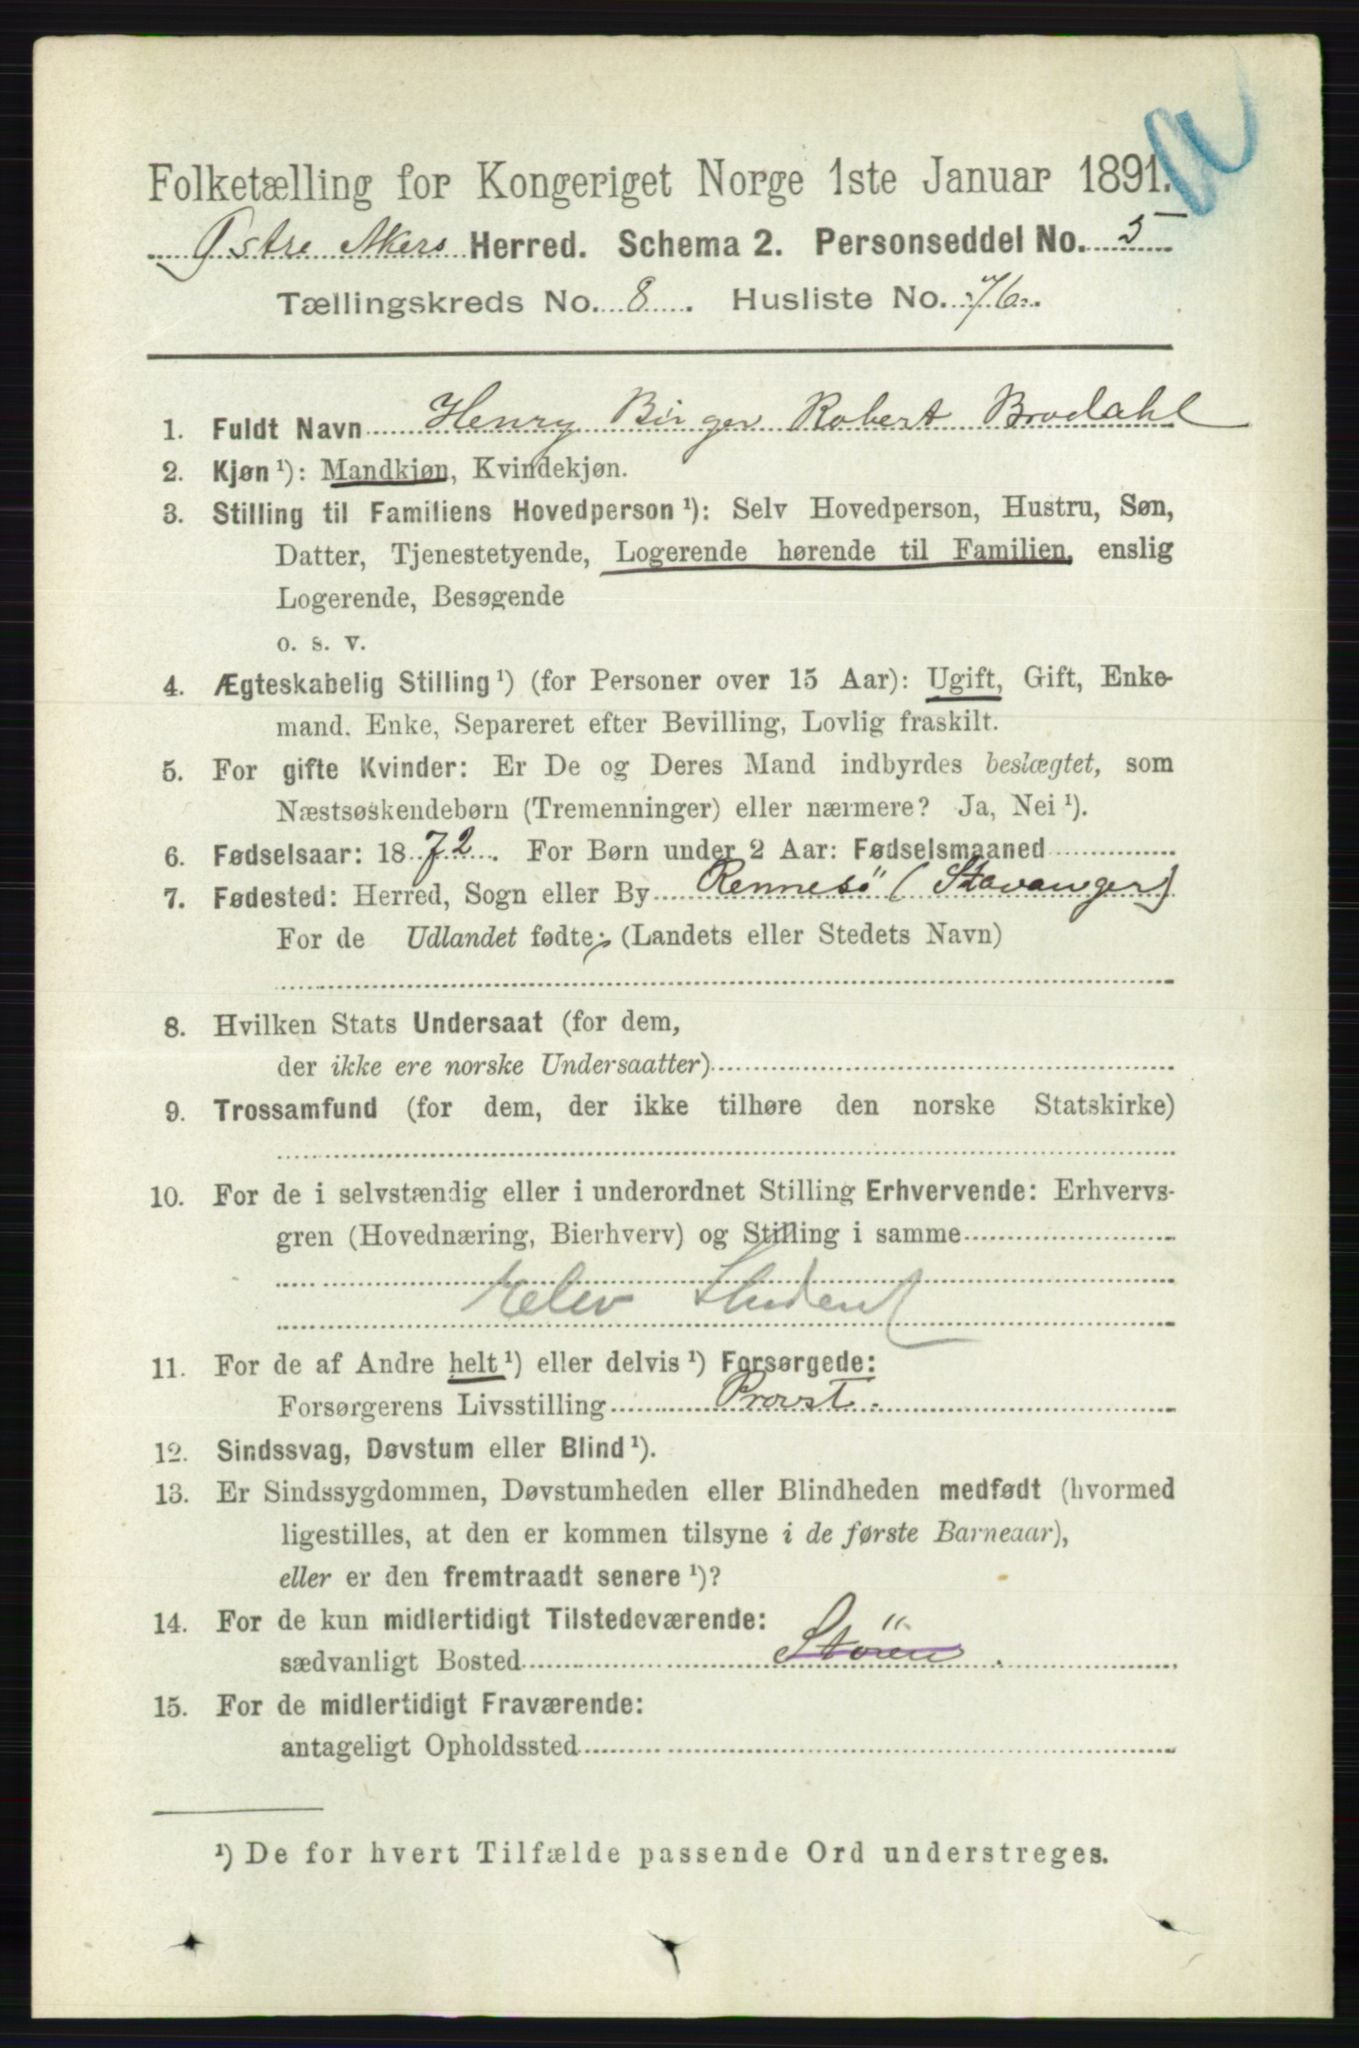 Folketælling for Kongeriget Norge 1ste Januar 1891.
Østre Akers Herred. Schema 2. Personseddel No. 5
Tællingskreds No. 8. Husliste No. 76.
1. Fuldt Navn Henry Birger Robert Brodahl
2. Kjøn ¹): Mandkjøn, Kvindekjøn.
3. Stilling til Familiens Hovedperson ¹): Selv Hovedperson, Hustru, Søn,
Datter, Tjenestetyende, Logerende hørende til Familien, enslig
Logerende, Besøgende
o. s. v.
4. Ægteskabelig Stilling ¹) (for Personer over 15 Aar): Ugift, Gift, Enke-
mand, Enke, Separeret efter Bevilling, Lovlig fraskilt.
5. For gifte Kvinder: Er De og Deres Mand indbyrdes beslægtet, som
Næstsøskendebørn (Tremenninger) eller nærmere? Ja, Nei ¹).
6. Fødselsaar: 1872. For Børn under 2 Aar: Fødselsmaaned
7. Fødested: Herred, Sogn eller By Rennesö (Stavanger)
For de Udlandet fødte: (Landets eller Stedets Navn)
8. Hvilken Stats Undersaat (for dem,
der ikke ere norske Undersaatter)
9. Trossamfund (for dem, der ikke tilhøre den norske Statskirke)
10. For de i selvstændig eller i underordnet Stilling Erhvervende: Erhvervs-
gren (Hovednæring, Bierhverv) og Stilling i samme
Elev Student
11. For de af Andre helt ¹) eller delvis ¹) Forsørgede:
Forsørgerens Livsstilling Provst.
12. Sindssvag, Døvstum eller Blind ¹).
13. Er Sindssygdommen, Døvstumheden eller Blindheden medfødt (hvormed
ligestilles, at den er kommen tilsyne i de første Barneaar),
eller er den fremtraadt senere ¹)?
14. For de kun midlertidigt Tilstedeværende:
sædvanligt Bosted Stören.
15. For de midlertidigt Fraværende:
antageligt Opholdssted
¹) De for hvert Tilfælde passende Ord understreges.